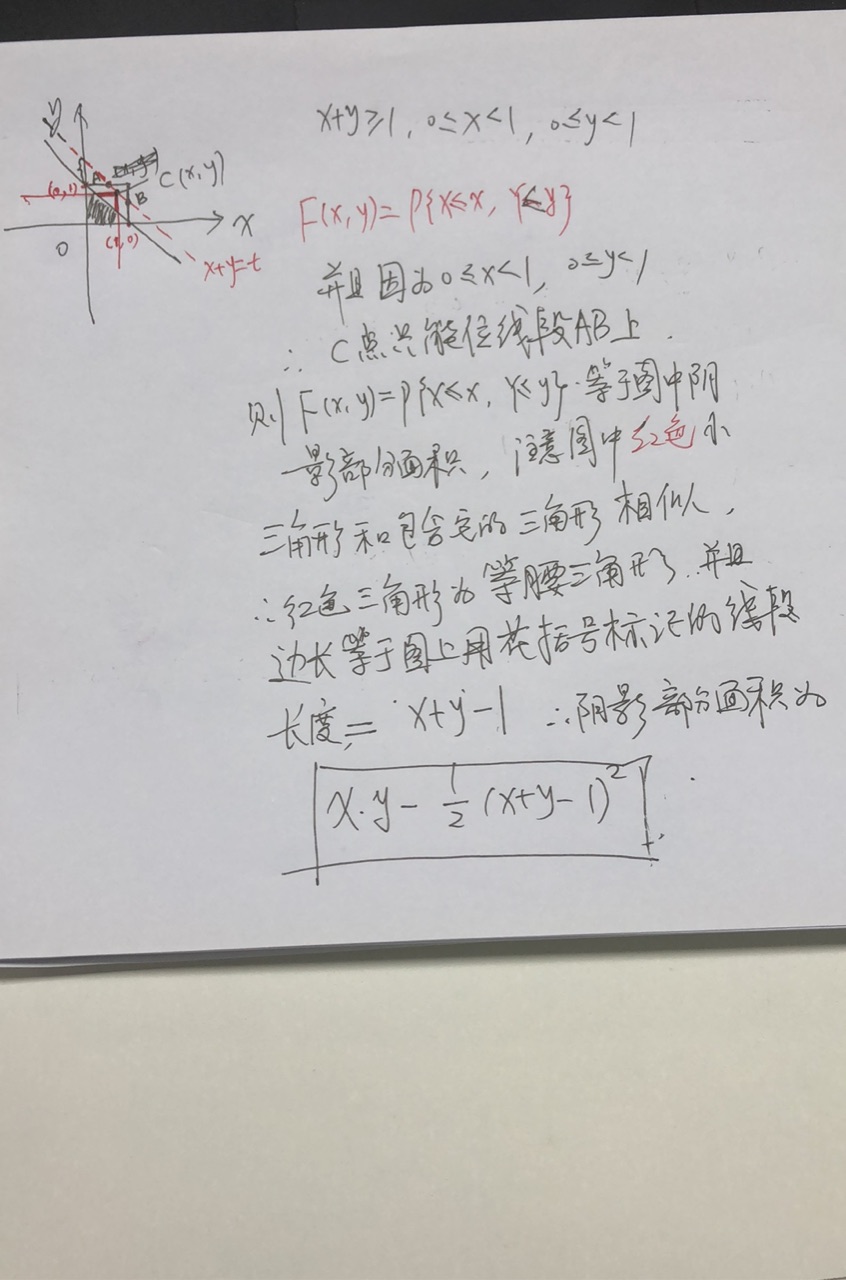 y
x+y≥1, 0≤x<1, 0≤y<1
A
C(x,y)
(0,1)
B
F(x,y)=P{X≤x, Y≤y}
x
0
(1,0)
x+y=t
并且因为0≤x<1, 0≤y<1
∴ C点只能位线段AB上.
则F(x,y)=P{X≤x, Y≤y}.等于图中阴
影部分面积, 注意图中红色小
三角形和包含它的三角形相似,
∴红色三角形为等腰三角形,并且
边长等于图上用花括号标记的线段
长度,= x+y-1 ∴阴影部分面积为
x.y - 1/2 (x+y-1)²